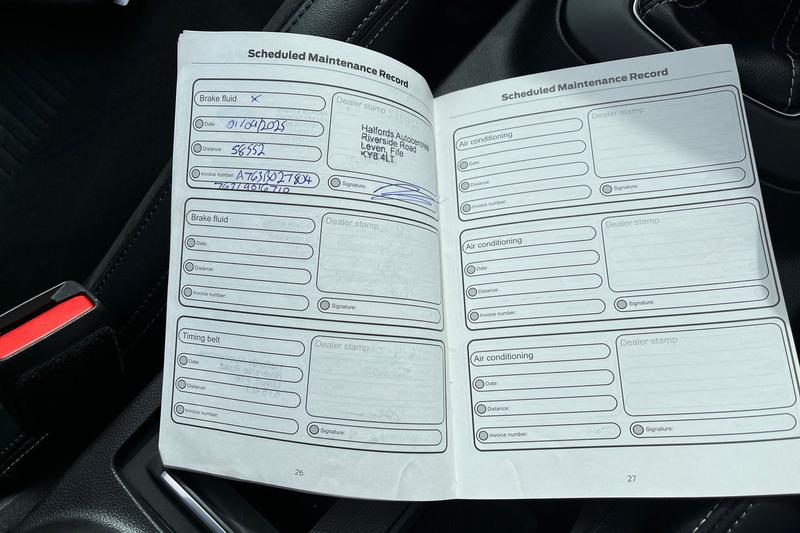 Scheduled Maintenance Record
Brake fluid x
Dealer stamp
Date: 01/09/2025
Distance: 56552
Invoice number: A763B027804
Halfords Autocentres
Riverside Road
Leven, Fife
KY8 4LT
Signature:
Brake fluid
Dealer stamp
Date:
Distance:
Invoice number:
Signature:
Timing belt
Dealer stamp
Date:
Distance:
Invoice number:
Signature:
26
Scheduled Maintenance Record
Air conditioning
Dealer stamp
Date:
Distance:
Invoice number:
Signature:
Air conditioning
Dealer stamp
Date:
Distance:
Invoice number:
Signature:
Air conditioning
Dealer stamp
Date:
Distance:
Invoice number:
Signature:
27